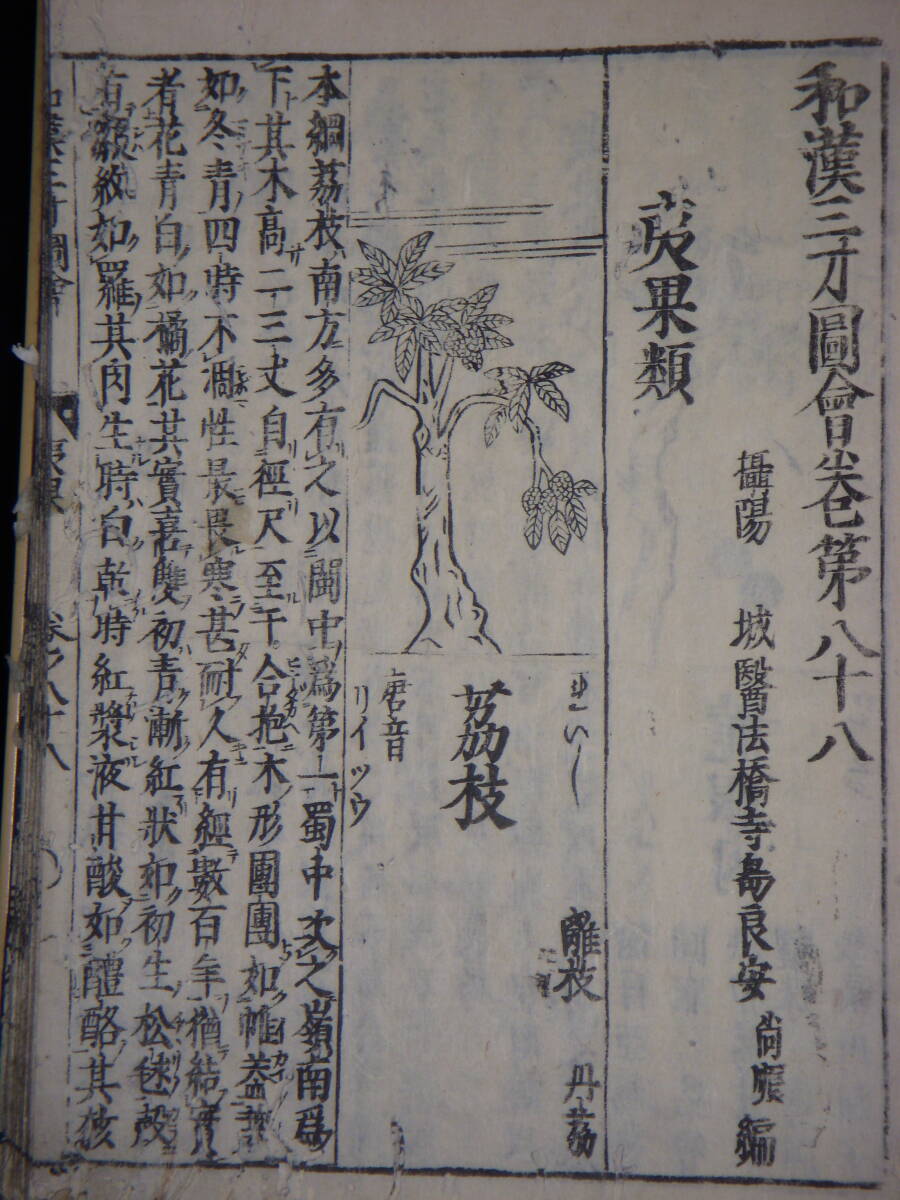 和漢三才圖會卷第八十八
攝陽 城醫法橋寺島良安尚順編
夷果類
れいし
離枝 丹荔
荔枝
唐音
リイツウ
本綱荔枝南方多有之以閩中爲第一蜀中次之嶺南爲
下其木高二三丈自徑尺至于合抱木形團團如帷蓋葉
如冬青四時不凋性最畏寒甚耐久有經數百年猶結實
者花青白如橘花其實喜雙初青漸紅狀如初生松毬殼
有皺紋如羅其肉生時白乾時紅漿液甘酸如醴酪其核